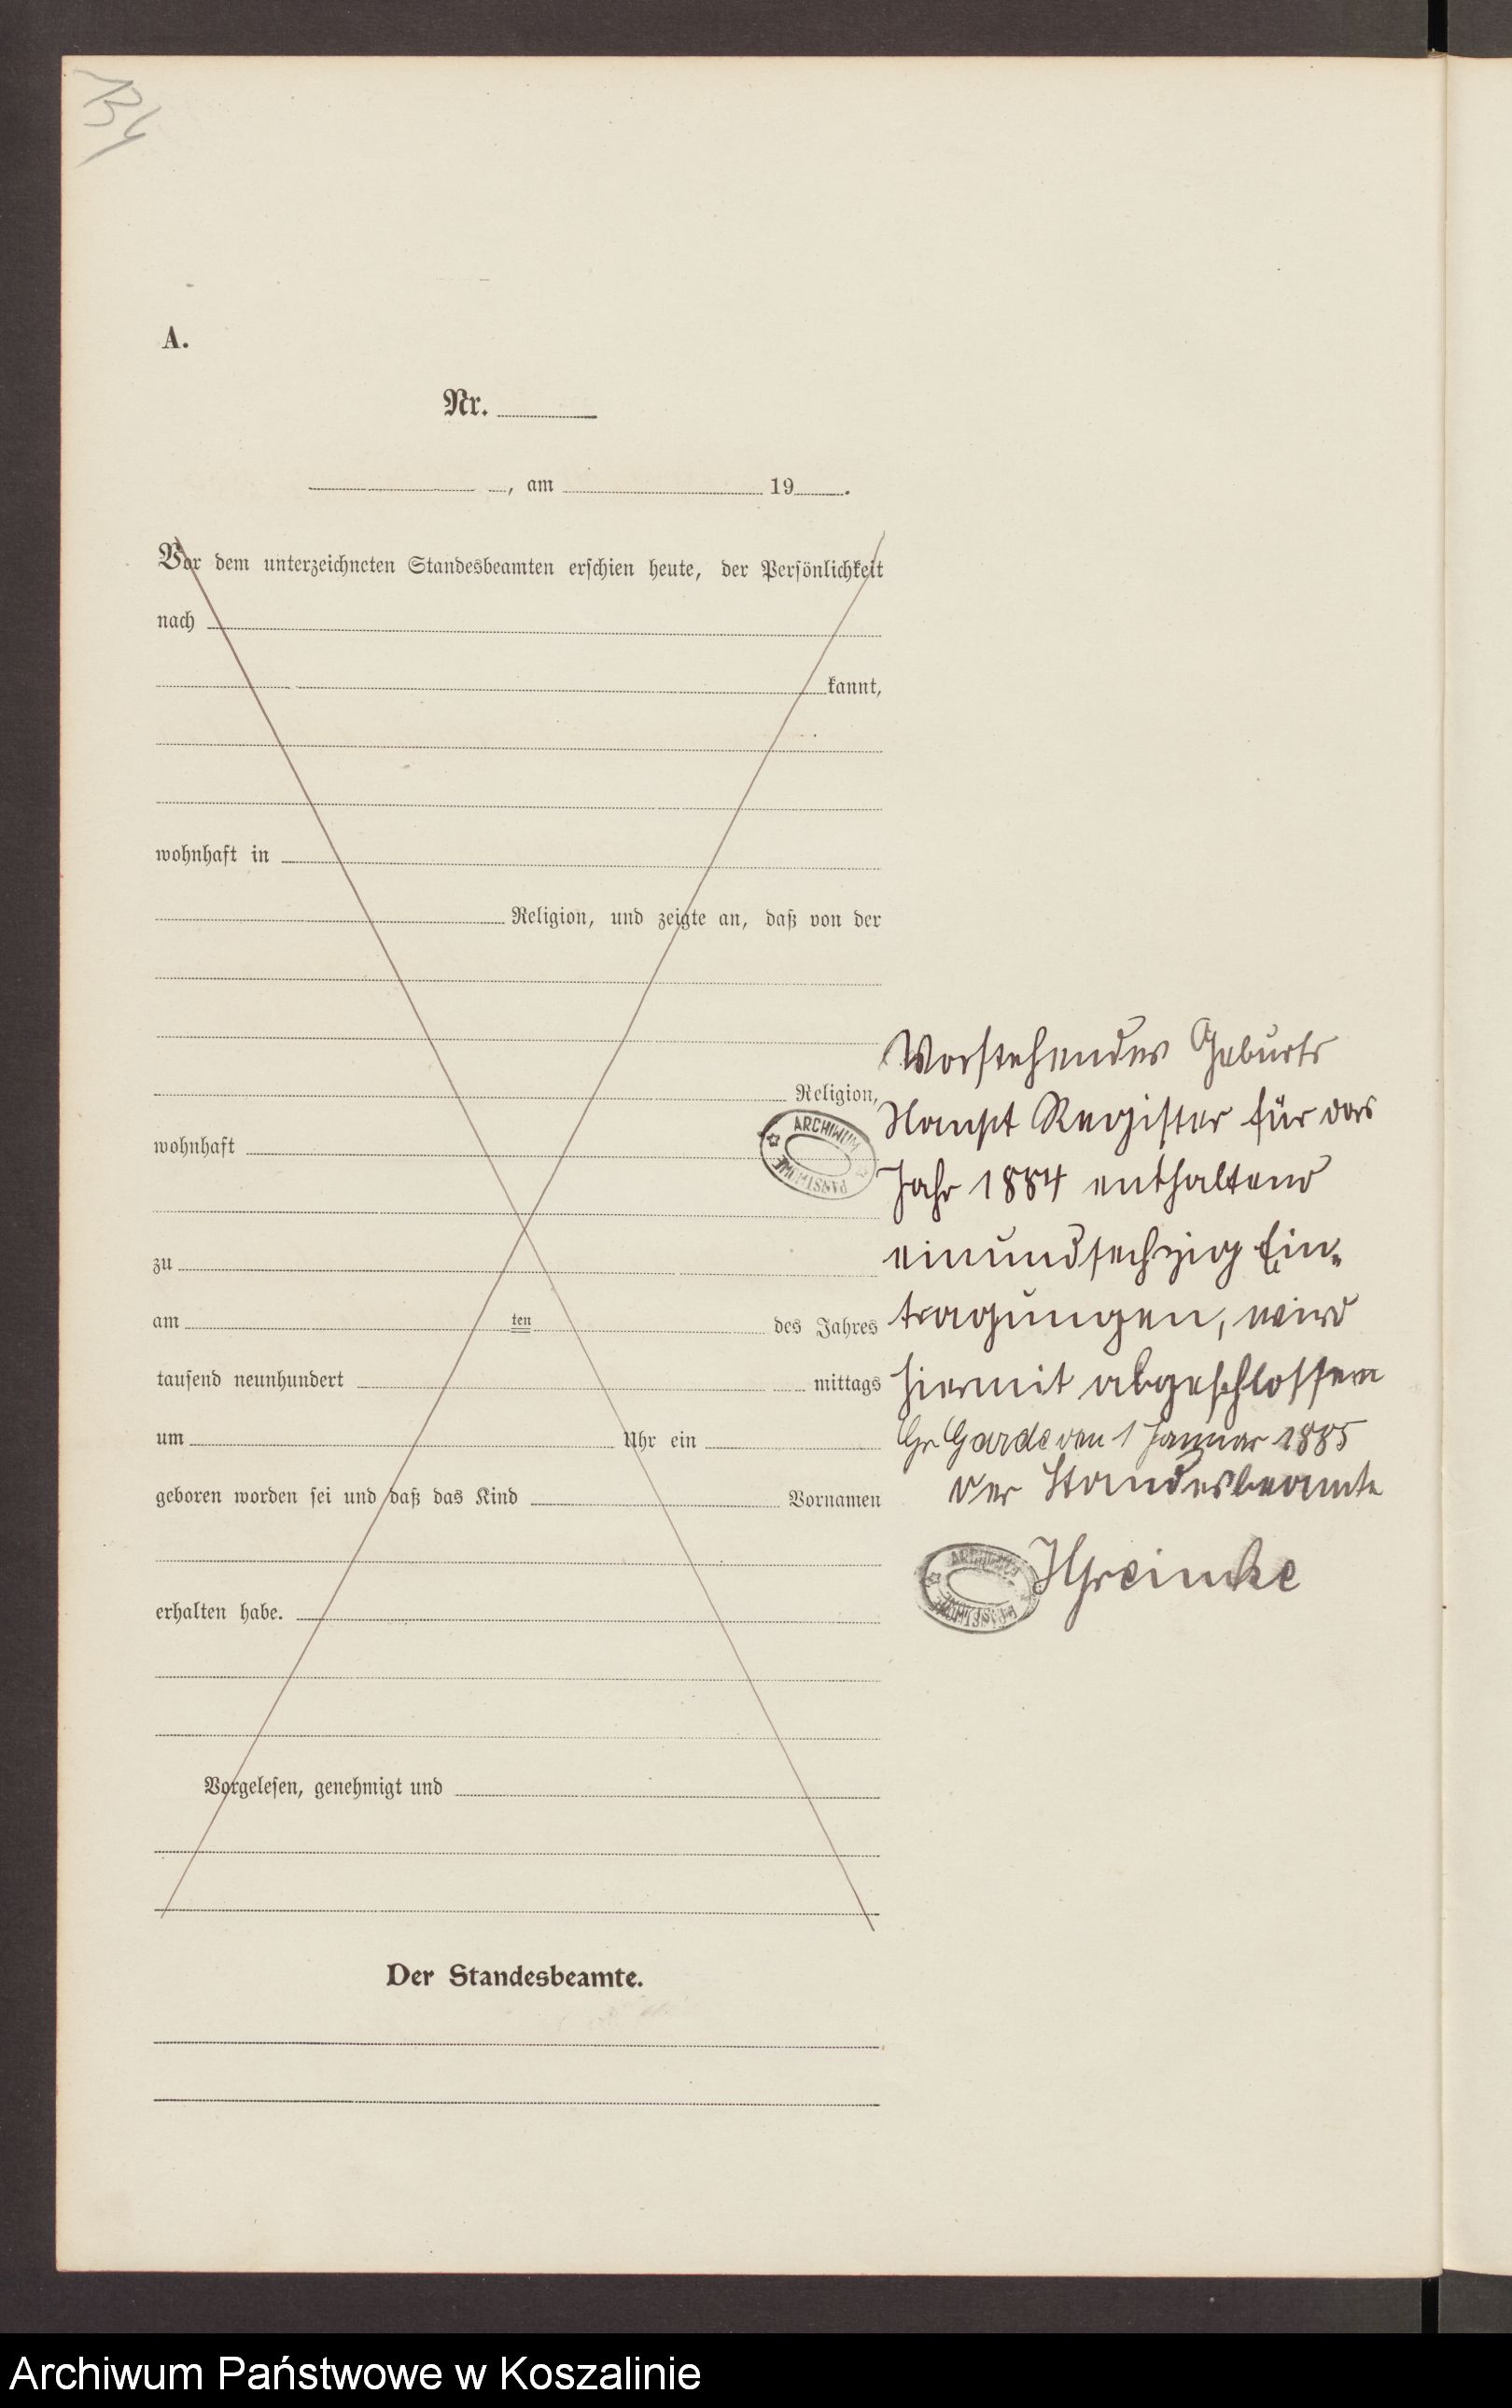 134
A.
Nr.
, am 19 .
Vor dem unterzeichneten Standesbeamten erschien heute, der Persönlichkeit
nach
kannt,
wohnhaft in
Religion, und zeigte an, daß von der
Religion,
wohnhaft
zu
am ten des Jahres
tausend neunhundert mittags
um Uhr ein
geboren worden sei und daß das Kind Vornamen
erhalten habe.
Vorgelesen, genehmigt und
Der Standesbeamte.
Vorstehendes Geburts
Haupt Register für das
Jahr 1884 enthaltend
einundsechzig Ein-
tragungen, wird
hiermit abgeschlossen
Gr Garde den 1 Januar 1885
Der Standesbeamte
ARCHIWUM PAŃSTWOWE
ARCHIWUM PAŃSTWOWE
Archiwum Państwowe w Koszalinie